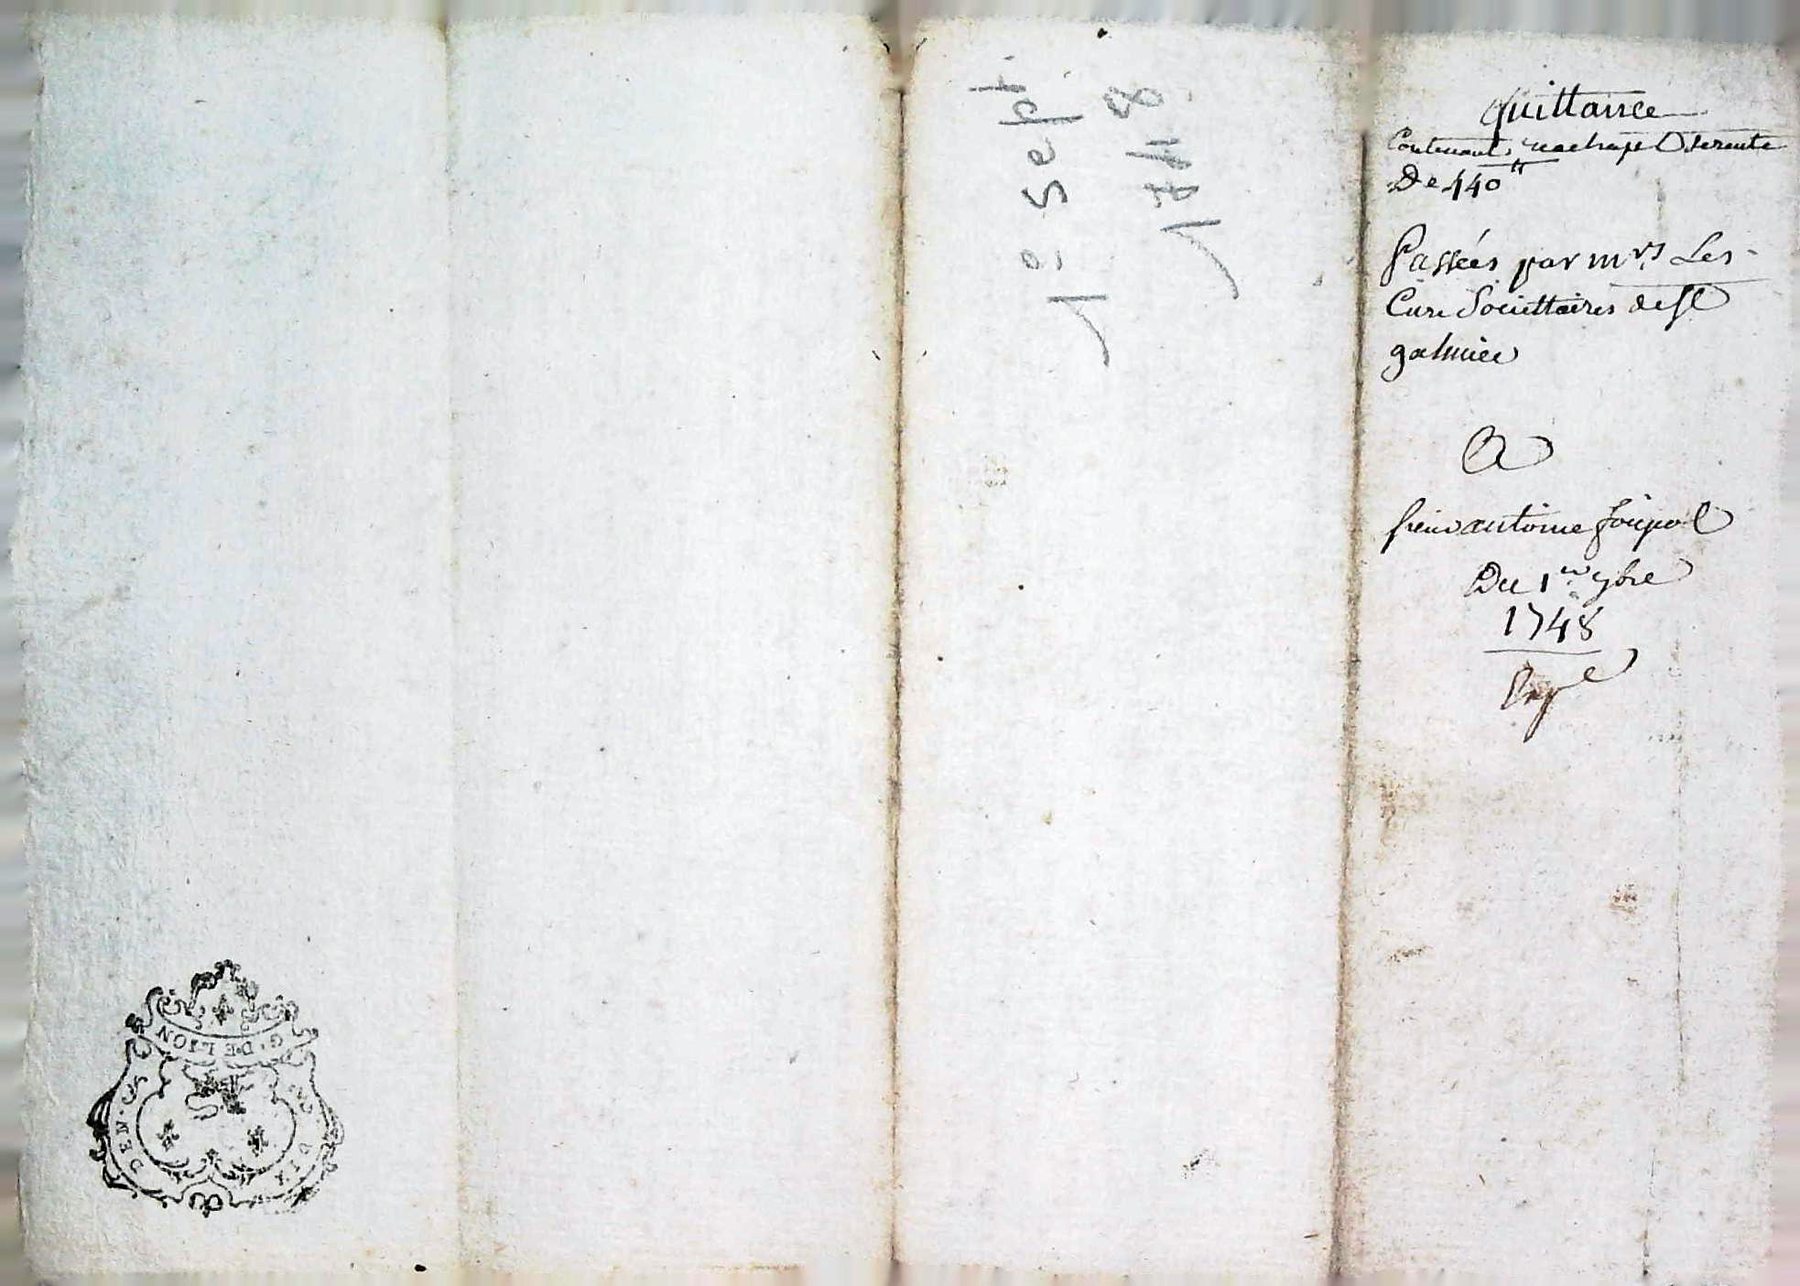 quittance
Contenant rachapt de rente
De 440ᵗᵗ
Passées par mʳˢ Les
Curé Societtaires de st
galmier
A
sieur antoine
Du 1ᵉʳ 7bre
1748
Expᵉ
1º sept.
1748
G. DE LION
DEN. SIX